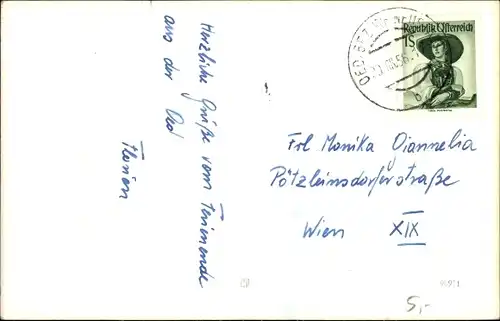 Herzliche Grüße vom Ferienende
aus der Oed
Florian
Republik Österreich
1S
Frl Monika Diannelia
Pötzleinsdorferstraße
Wien XIX
5,-